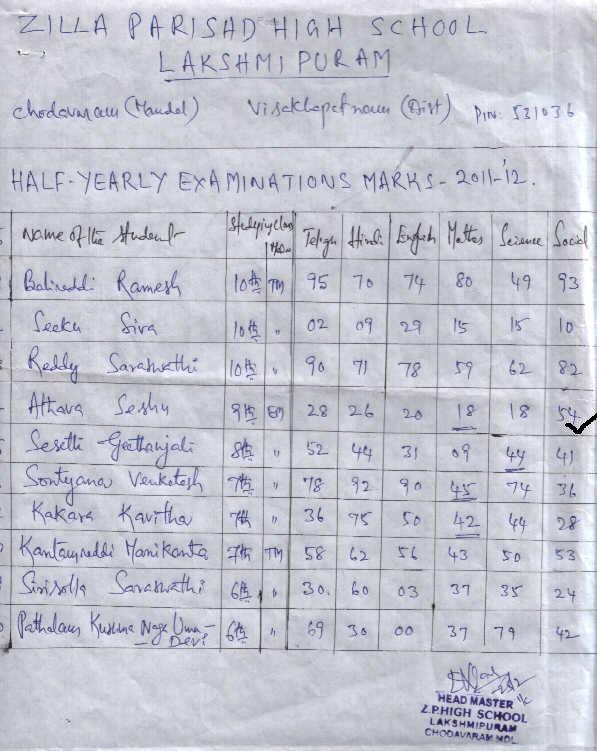 ZILLA PARISAD HIGH SCHOOL
LAKSHMIPURAM
Chodavaram (Mandal) Visakhapatnam (Dist) PIN: 531036
HALF-YEARLY EXAMINATIONS MARKS - 2011-'12.
Name of the Student Studying class Telugu Hindi English Maths Science Social
Balireddi Ramesh 10th TM 95 70 74 80 49 93
Seeku Siva 10th " 02 09 29 15 15 10
Reddy Saraswathi 10th " 90 71 78 59 62 82
Athava Seshu 9th EM 28 26 20 18 18 54
Sesetti Geethanjali 8th " 52 44 31 09 44 41
Sontyana Venkatesh 7th " 78 92 90 45 74 36
Kakara Kavitha 7th " 36 75 50 42 44 28
Kantamreddi Manikanta 7th TM 58 62 56 43 50 53
Sirisolla Saraswathi 6th " 30. 60 03 37 35 24
Pathalam Kusuma Naga Uma- 6th " 69 30 00 37 79 42
Devi
HEAD MASTER
Z.P.HIGH SCHOOL
LAKSHMIPURAM
CHODAVARAM MDL.